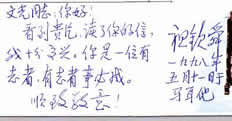 文光同志：你好！
看到贵纸，读了你的信，
我十分高兴。你是一位有
志者，有志者事必成。
顺致敬意！
祝钦舜
一九九八年
五月十一日